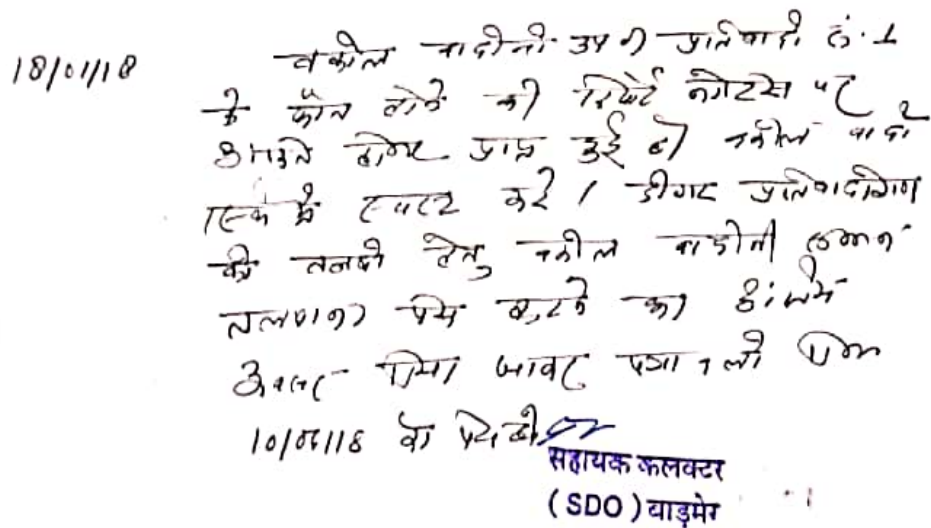 18/01/18 वकील वादीनी उप नी प्रतिवादी सं. 1
के फौत होने की रिपोर्ट नोटिस पर
होकर प्राप्त हुई हो वकील वादी
स्पष्ट करे । दीगर प्रतिवादीगण
की तलबी हेतु वकील वादीनी
तलवाना पेश करने का अंतिम
अवसर दिया जाकर पत्रावली
10/06/18 को पेश हो
सहायक कलक्टर
(SDO) बाड़मेर